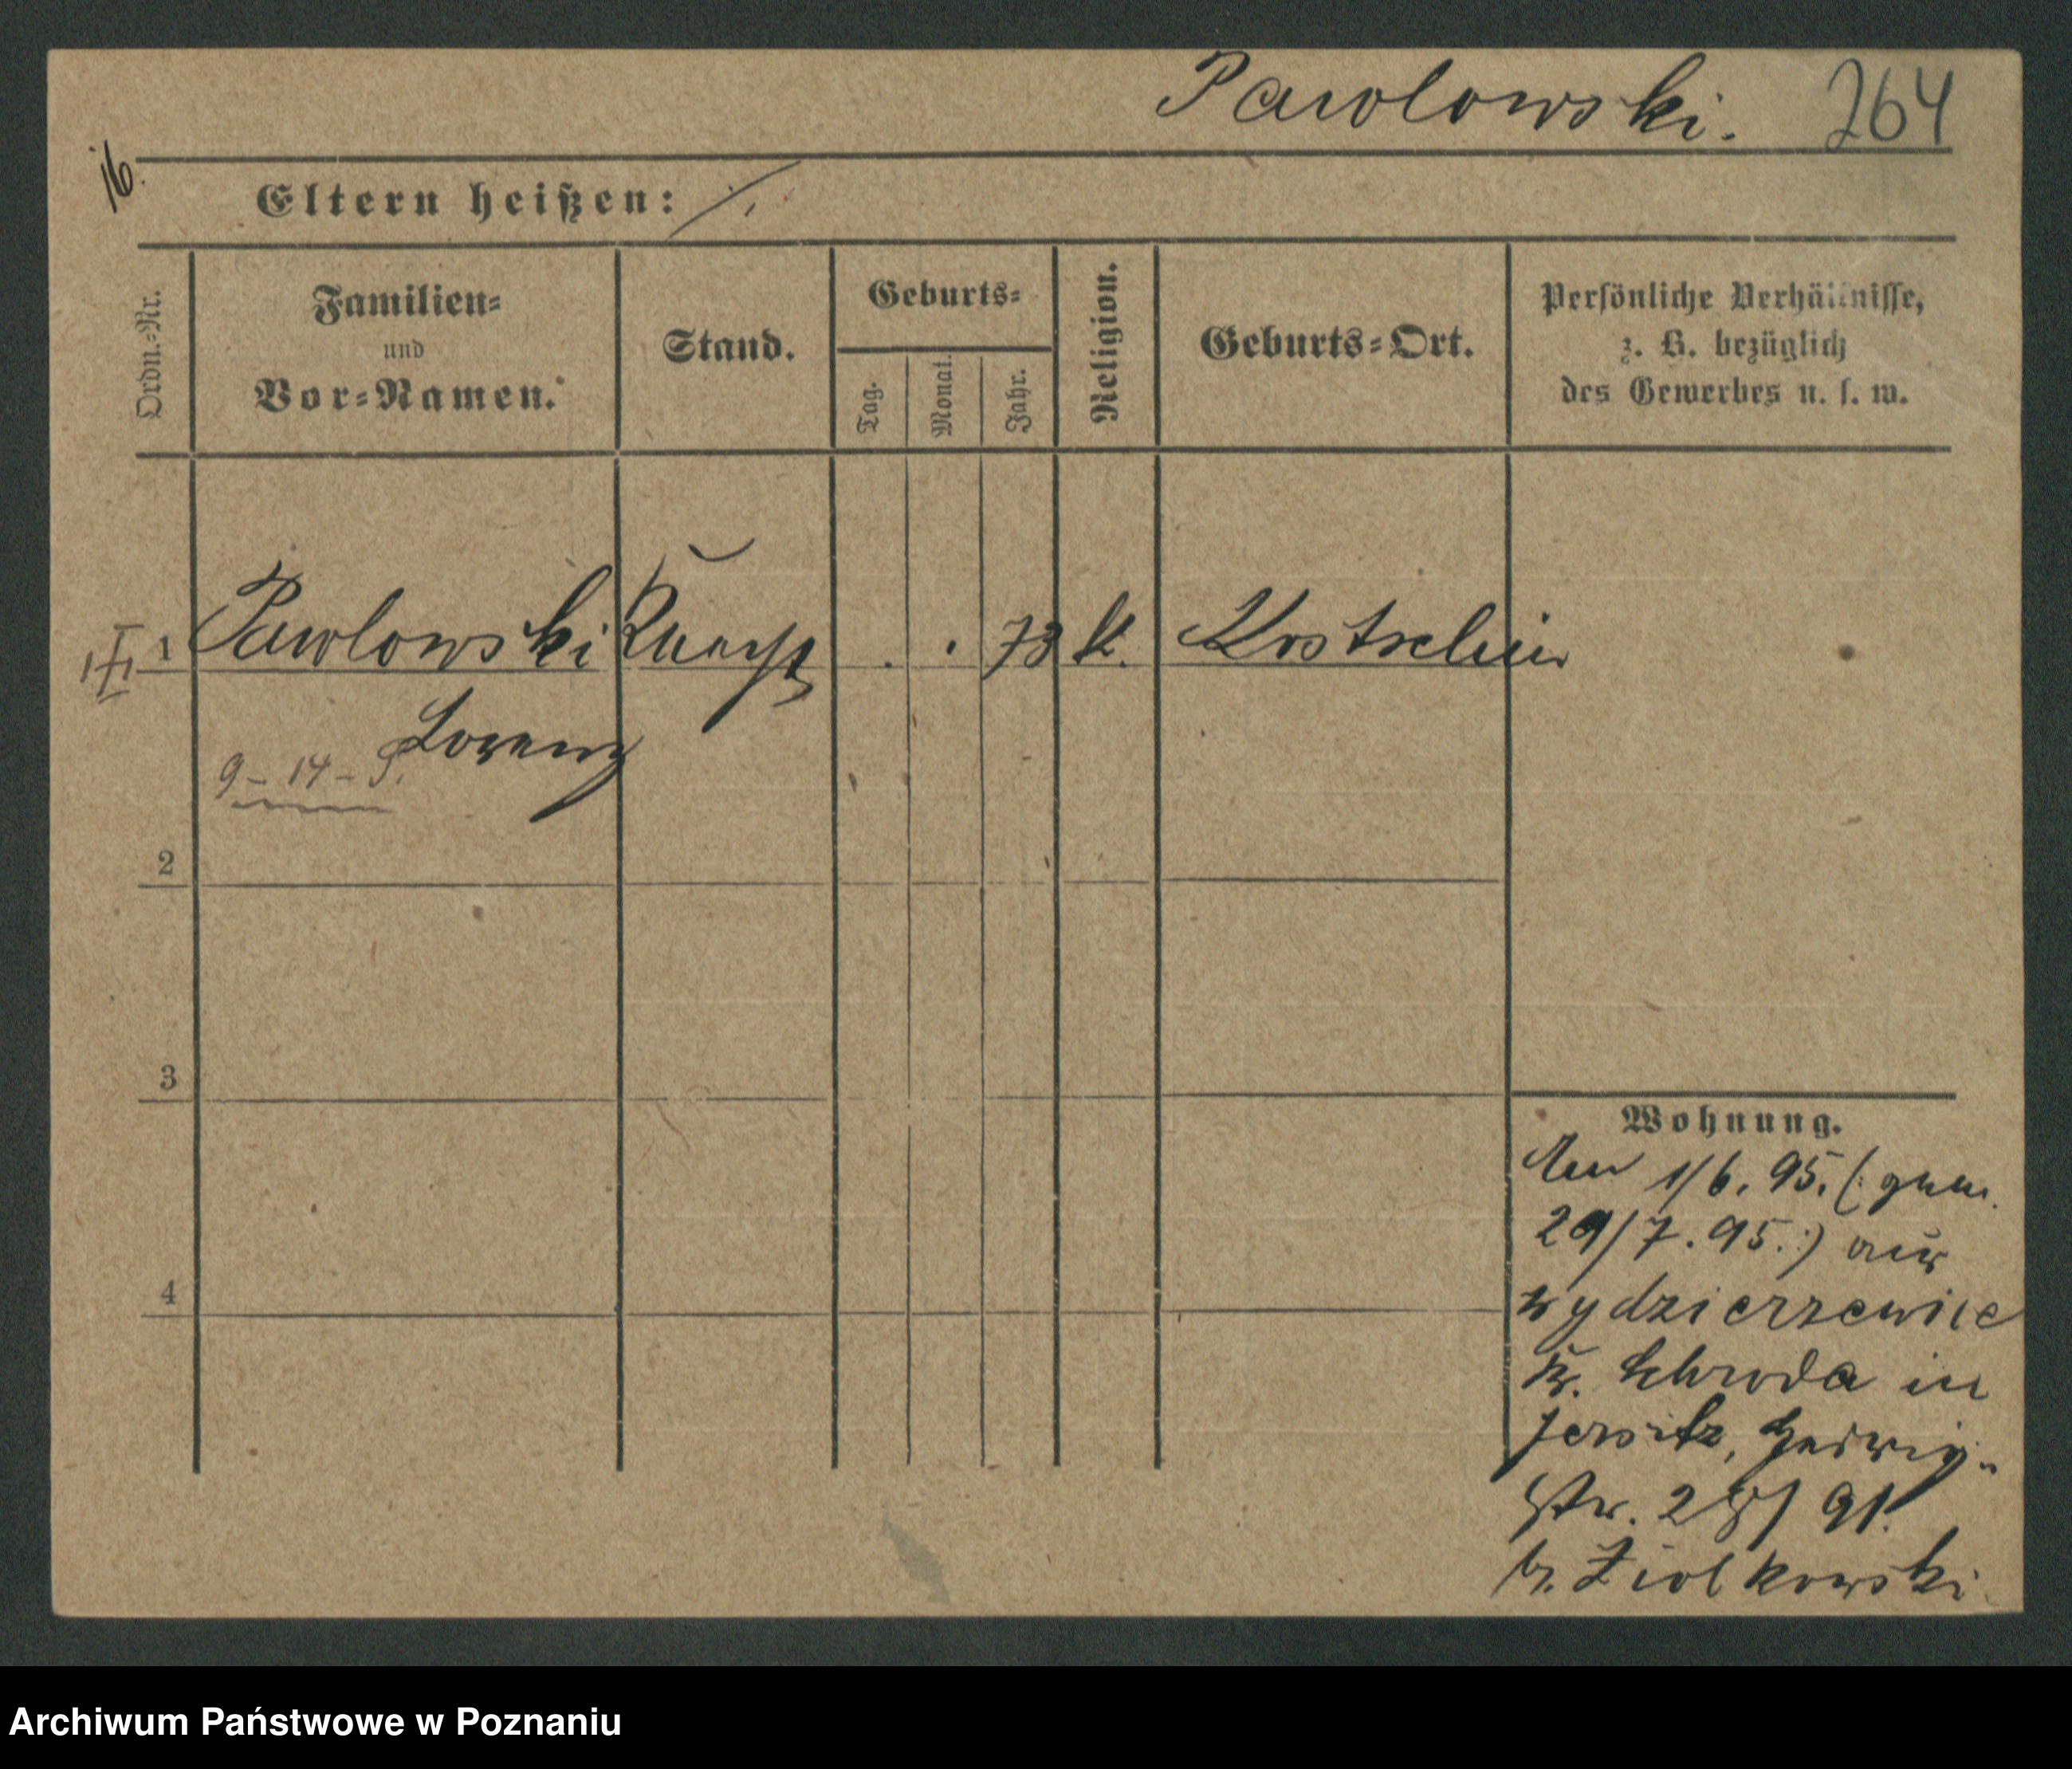 Pawlowski. 264
16.
Eltern heißen: ./.
Ordn.-Nr.
Familien-
und
Vor-Namen.
Stand.
Geburts-
Tag.
Monat.
Jahr.
Religion.
Geburts-Ort.
Persönliche Verhältnisse,
z. B. bezüglich
des Gewerbes u. s. w.
1 Pawlowski Knecht . . 73 K. Kostschin
Lorenz
9 - 14 -
2
3
4
Wohnung.
Am 1/6. 95. (: gem.
29/7. 95. :) aus
Wydzierzewice
Kr. Schroda in
Jersitz, Hedwig-
Str. 28/ 91.
b. Ziolkowski
Archiwum Państwowe w Poznaniu